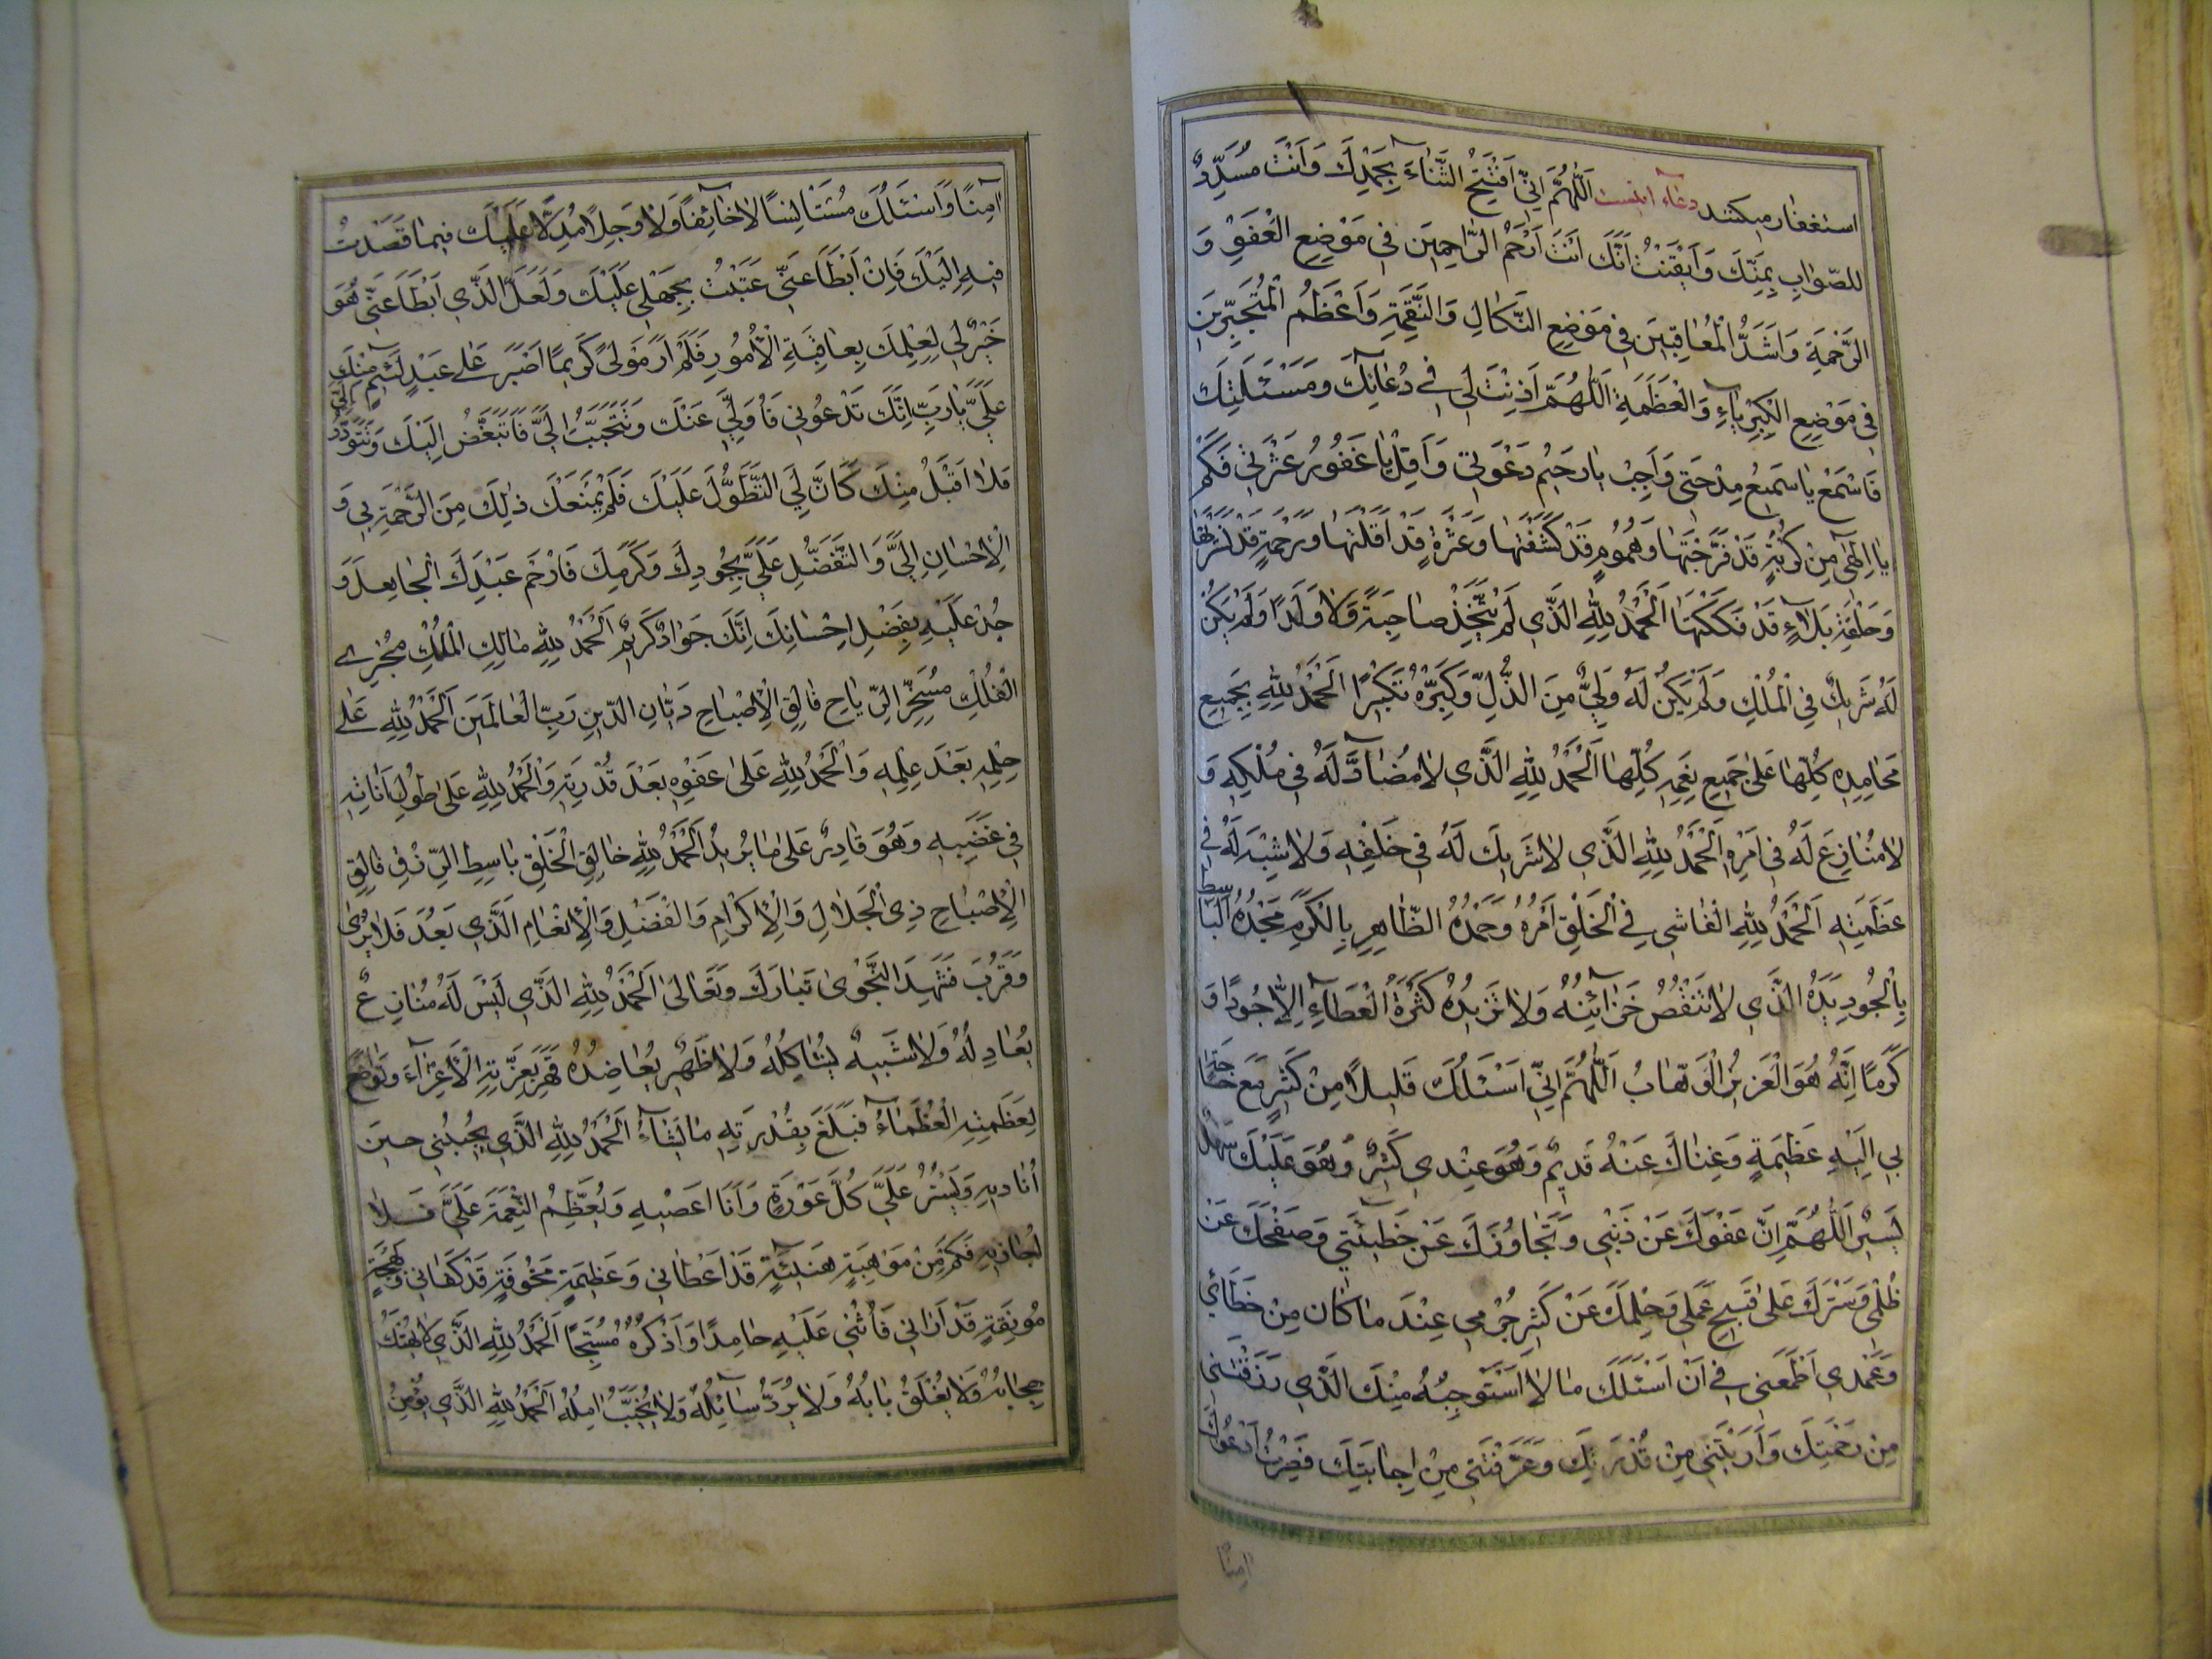 استغفار میکنند دعاء اینست اَللّٰهُمَّ اِنّي اَفْتَتِحُ الثَّنٰاءَ بِحَمْدِكَ وَاَنْتَ مُسَدِّدٌ
للصَّوٰابِ بِمَنِّكَ وَاَيْقَنْتُ اَنَّكَ اَنْتَ اَرْحَمُ الرّٰاحِمِينَ فِي مَوْضِعِ الْعَفْوِ وَ
الرَّحْمَةِ وَاَشَدُّ الْمُعٰاقِبِينَ فِي مَوْضِعِ النَّكٰالِ وَالنَّقِمَةِ وَاَعْظَمُ الْمُتَجَبِّرِينَ
فِي مَوْضِعِ الْكِبْرِيٰاءِ وَالْعَظَمَةِ اَللّٰهُمَّ اَذِنْتَ لِي فِي دُعٰائِكَ وَمَسْئَلَتِكَ
فَاسْمَعْ يٰا سَمِيعُ مِدْحَتِي وَاَجِبْ يٰا رَحِيمُ دَعْوَتِي وَاَقِلْ يٰا غَفُورُ عَثْرَتِي فَكَمْ
يٰا اِلٰهِي مِنْ كُرْبَةٍ قَدْ فَرَّجْتَهٰا وَهُمُومٍ قَدْ كَشَفْتَهٰا وَعَثْرَةٍ قَدْ اَقَلْتَهٰا وَرَحْمَةٍ قَدْ نَشَرْتَهٰا
وَحَلْقَةِ بَلٰاءٍ قَدْ فَكَكْتَهٰا اَلْحَمْدُ لِلّٰهِ الَّذِي لَمْ يَتَّخِذْ صٰاحِبَةً وَلٰا وَلَدًا وَلَمْ يَكُنْ
لَهُ شَرِيكٌ فِي الْمُلْكِ وَلَمْ يَكُنْ لَهُ وَلِيٌّ مِنَ الذُّلِّ وَكَبِّرْهُ تَكْبِيرًا اَلْحَمْدُ لِلّٰهِ بِجَمِيعِ
مَحٰامِدِهِ كُلِّهٰا عَلىٰ جَمِيعِ نِعَمِهِ كُلِّهٰا اَلْحَمْدُ لِلّٰهِ الَّذِي لٰا مُضٰادَّ لَهُ فِي مُلْكِهِ وَ
لٰا مُنٰازِعَ لَهُ فِي اَمْرِهِ اَلْحَمْدُ لِلّٰهِ الَّذِي لٰا شَرِيكَ لَهُ فِي خَلْقِهِ وَلٰا شِبْهَ لَهُ فِي
عَظَمَتِهِ اَلْحَمْدُ لِلّٰهِ الْفٰاشِي فِي الْخَلْقِ اَمْرُهُ وَحَمْدُهُ الظّٰاهِرِ بِالْكَرَمِ مَجْدُهُ الْبٰاسِطِ
بِالْجُودِ يَدَهُ الَّذِي لٰا تَنْقُصُ خَزٰائِنُهُ وَلٰا تَزِيدُهُ كَثْرَةُ الْعَطٰاءِ اِلّٰا جُودًا وَ
كَرَمًا اِنَّهُ هُوَ الْعَزِيزُ الْوَهّٰابُ اَللّٰهُمَّ اِنّي اَسْئَلُكَ قَلِيلًا مِنْ كَثِيرٍ مَعَ حٰاجَةٍ
بِي اِلَيْهِ عَظِيمَةٍ وَغِنٰاكَ عَنْهُ قَدِيمٌ وَهُوَ عِنْدِي كَثِيرٌ وَهُوَ عَلَيْكَ سَهْلٌ
يَسِيرٌ اَللّٰهُمَّ اِنَّ عَفْوَكَ عَنْ ذَنْبِي وَتَجٰاوُزَكَ عَنْ خَطِيئَتِي وَصَفْحَكَ عَنْ
ظُلْمِي وَسَتْرَكَ عَلىٰ قَبِيحِ عَمَلِي وَحِلْمَكَ عَنْ كَثِيرِ جُرْمِي عِنْدَ مٰا كٰانَ مِنْ خَطَائِي
وَعَمْدِي اَطْمَعَنِي فِي اَنْ اَسْئَلَكَ مٰا لٰا اَسْتَوْجِبُهُ مِنْكَ الَّذِي رَزَقْتَنِي
مِنْ رَحْمَتِكَ وَاَرَيْتَنِي مِنْ قُدْرَتِكَ وَعَرَّفْتَنِي مِنْ اِجٰابَتِكَ فَصِرْتُ اَدْعُوكَ
اٰمِنًا
اٰمِنًا وَاَسْئَلُكَ مُسْتَأْنِسًا لٰا خٰائِفًا وَلٰا وَجِلًا مُدِلًّا عَلَيْكَ فِيمٰا قَصَدْتُ
فِيهِ اِلَيْكَ فَاِنْ اَبْطَأَ عَنِّي عَتَبْتُ بِجَهْلِي عَلَيْكَ وَلَعَلَّ الَّذِي اَبْطَأَ عَنِّي هُوَ
خَيْرٌ لِي لِعِلْمِكَ بِعٰاقِبَةِ الْاُمُورِ فَلَمْ اَرَ مَوْلىً كَرِيمًا اَصْبَرَ عَلىٰ عَبْدٍ لَئِيمٍ مِنْكَ
عَلَيَّ يٰا رَبِّ اِنَّكَ تَدْعُونِي فَاُوَلِّي عَنْكَ وَتَتَحَبَّبُ اِلَيَّ فَاَتَبَغَّضُ اِلَيْكَ وَتَتَوَدَّدُ اِلَيَّ
فَلٰا اَقْبَلُ مِنْكَ كَاَنَّ لِيَ التَّطَوُّلَ عَلَيْكَ فَلَمْ يَمْنَعْكَ ذٰلِكَ مِنَ الرَّحْمَةِ بِي وَ
الْاِحْسٰانِ اِلَيَّ وَالتَّفَضُّلِ عَلَيَّ بِجُودِكَ وَكَرَمِكَ فَارْحَمْ عَبْدَكَ الْجٰاهِلَ وَ
جُدْ عَلَيْهِ بِفَضْلِ اِحْسٰانِكَ اِنَّكَ جَوٰادٌ كَرِيمٌ اَلْحَمْدُ لِلّٰهِ مٰالِكِ الْمُلْكِ مُجْرِي
الْفُلْكِ مُسَخِّرِ الرِّيٰاحِ فٰالِقِ الْاِصْبٰاحِ دَيّٰانِ الدِّينِ رَبِّ الْعٰالَمِينَ اَلْحَمْدُ لِلّٰهِ عَلىٰ
حِلْمِهِ بَعْدَ عِلْمِهِ وَالْحَمْدُ لِلّٰهِ عَلىٰ عَفْوِهِ بَعْدَ قُدْرَتِهِ وَالْحَمْدُ لِلّٰهِ عَلىٰ طُولِ اَنٰاتِهِ
فِي غَضَبِهِ وَهُوَ قٰادِرٌ عَلىٰ مٰا يُرِيدُ اَلْحَمْدُ لِلّٰهِ خٰالِقِ الْخَلْقِ بٰاسِطِ الرِّزْقِ فٰالِقِ
الْاِصْبٰاحِ ذِي الْجَلٰالِ وَالْاِكْرٰامِ وَالْفَضْلِ وَالْاِنْعٰامِ الَّذِي بَعُدَ فَلٰا يُرىٰ
وَقَرُبَ فَشَهِدَ النَّجْوىٰ تَبٰارَكَ وَتَعٰالىٰ اَلْحَمْدُ لِلّٰهِ الَّذِي لَيْسَ لَهُ مُنٰازِعٌ
يُعٰادِلُهُ وَلٰا شَبِيهٌ يُشٰاكِلُهُ وَلٰا ظَهِيرٌ يُعٰاضِدُهُ قَهَرَ بِعِزَّتِهِ الْاَعِزّٰاءَ وَتَوٰاضَعَ
لِعَظَمَتِهِ الْعُظَمٰاءُ فَبَلَغَ بِقُدْرَتِهِ مٰا يَشٰاءُ اَلْحَمْدُ لِلّٰهِ الَّذِي يُجِيبُنِي حِينَ
اُنٰادِيهِ وَيَسْتُرُ عَلَيَّ كُلَّ عَوْرَةٍ وَاَنَا اَعْصِيهِ وَيُعَظِّمُ النِّعْمَةَ عَلَيَّ فَلٰا
اُجٰازِيهِ فَكَمْ مِنْ مَوْهِبَةٍ هَنِيئَةٍ قَدْ اَعْطٰانِي وَعَظِيمَةٍ مَخُوفَةٍ قَدْ كَفٰانِي وَبَهْجَةٍ
مُونِقَةٍ قَدْ اَرٰانِي فَاُثْنِي عَلَيْهِ حٰامِدًا وَاَذْكُرُهُ مُسَبِّحًا اَلْحَمْدُ لِلّٰهِ الَّذِي لٰا يُهْتَكُ
حِجٰابُهُ وَلٰا يُغْلَقُ بٰابُهُ وَلٰا يُرَدُّ سٰائِلُهُ وَلٰا يُخَيَّبُ اٰمِلُهُ اَلْحَمْدُ لِلّٰهِ الَّذِي يُؤْمِنُ